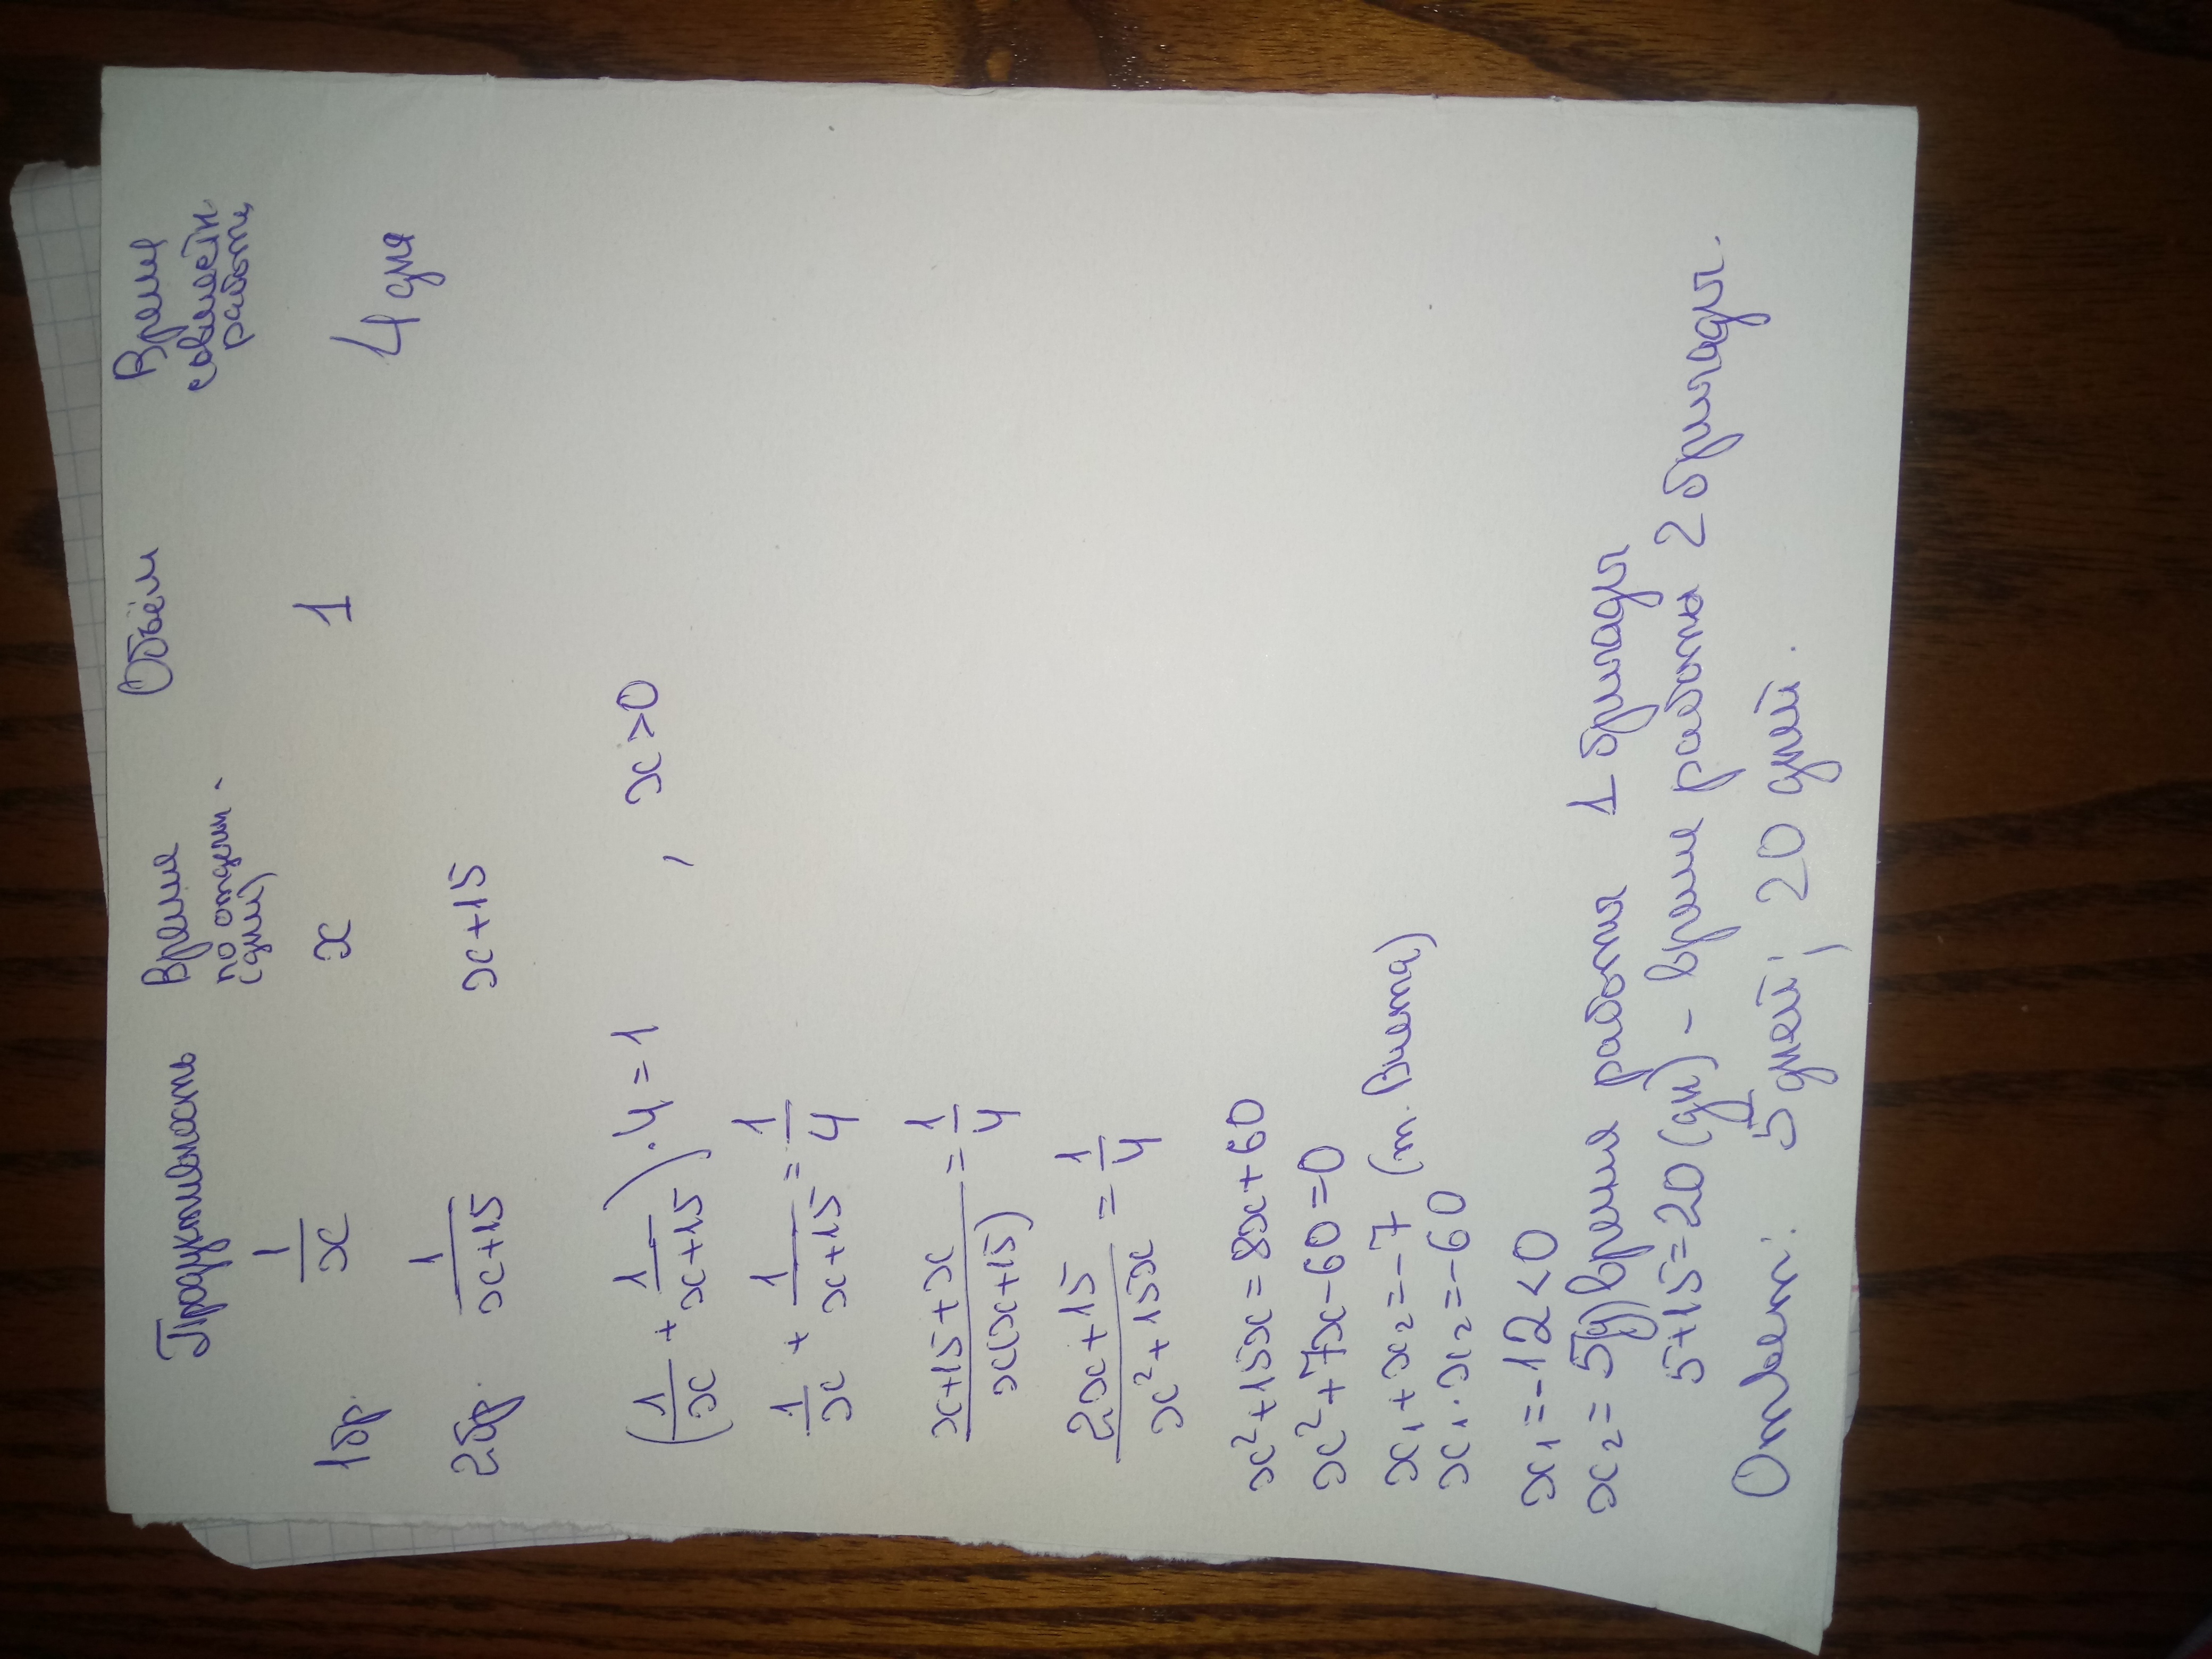 Продуктивность Время Объём Время
по отдельн. совместн.
(дни) работы
1бр. 1/x x 1 4 дня
2бр. 1/(x+15) x+15
(1/x + 1/(x+15)) · 4 = 1 , x>0
1/x + 1/(x+15) = 1/4
(x+15+x)/(x(x+15)) = 1/4
(2x+15)/(x²+15x) = 1/4
x²+15x=8x+60
x²+7x-60=0
x₁+x₂=-7 (т. Виета)
x₁·x₂=-60
x₁=-12<0
x₂=5(д) время работы 1 бригады
5+15=20 (дн) - время работы 2 бригады.
Ответ: 5 дней; 20 дней.